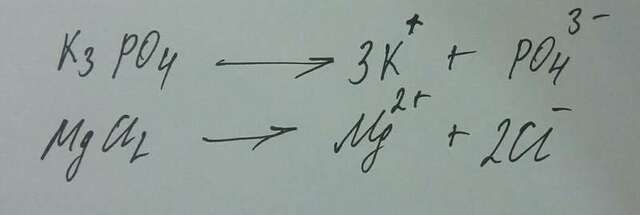 K₃PO₄ → 3K⁺ + PO₄³⁻
MgCl₂ → Mg²⁺ + 2Cl⁻